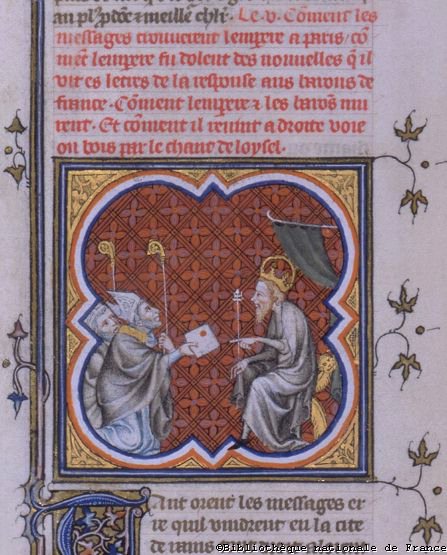 au pl⁹ p̃doe et meille᷑ ch̃r. Le .v. Coment les
messages trouuerent lempere a paris / cō
mēt lempere fu dolent des nouuelles q̃ il
vit es letres de la response aus barons de
france. Coment lempere ⁊ les barōs mu
rent. Et coment il reuint a droite voie
ou bois par le chant de loysel.
Tant orent les messages er
re quil vindrent en la cite
de
©Bibliothèque nationale de France